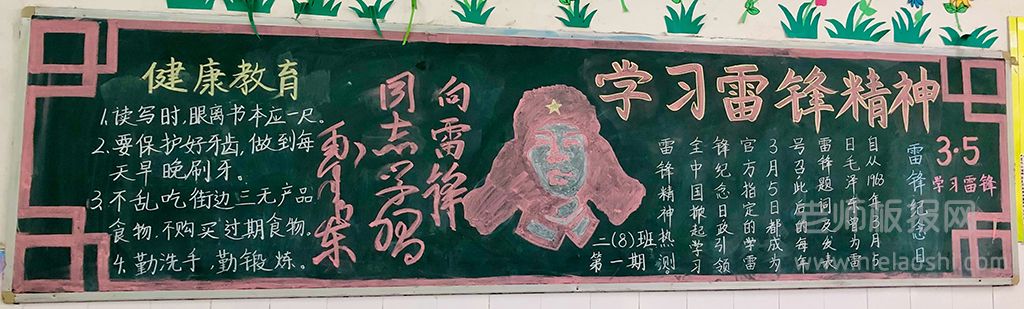 健康教育
1.读写时,眼离书本应一尺。
2.要保护好牙齿,做到每
天早晚刷牙。
3.不乱吃街边三无产品
食物.不购买过期食物.
4.勤洗手,勤锻炼。
向雷锋
同志学习
毛泽东
学习雷锋精神
3·5
学习雷锋
雷锋纪念日
自从1963年3月5
日毛泽东为雷
雷锋题词发表
号召此后的每年
3月5日都成为
官方指定的学雷
锋纪念日政引领
全中国掀起学习
雷锋精神热测
二(8)班
第一期
老师版报网
www.nielaoshi.com